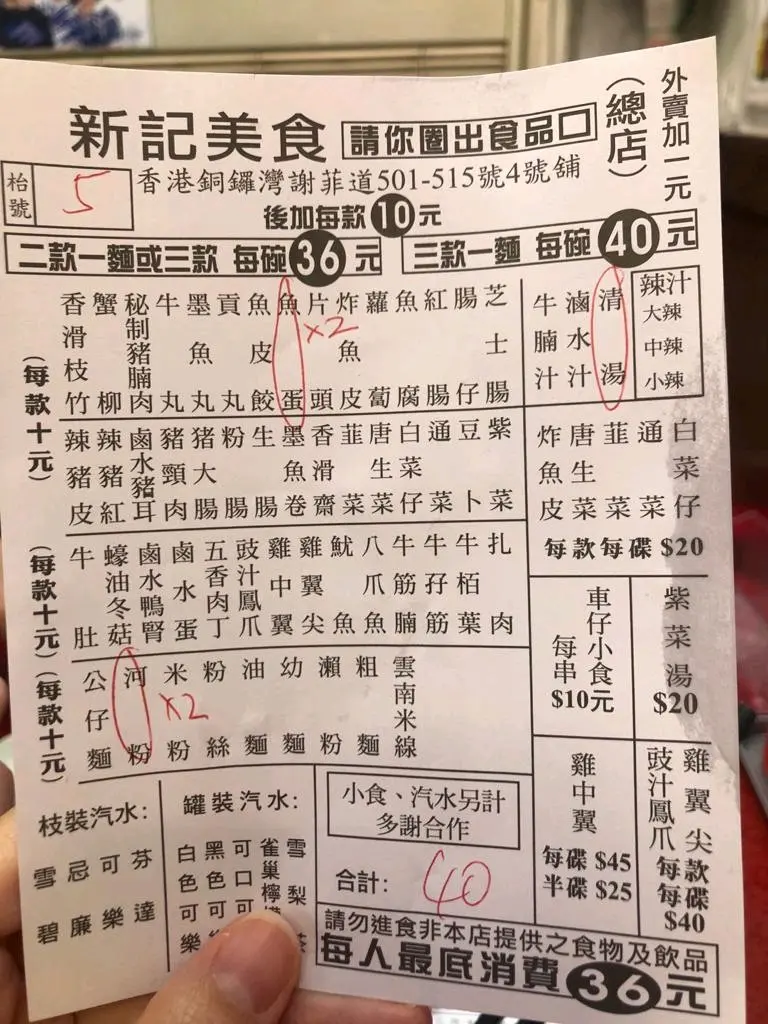 新記美食
請你圈出食品
(總店)
外賣加一元
枱號
5
香港銅鑼灣謝菲道501-515號4號舖
後加每款10元
二款一麵或三款 每碗36元
三款一麵 每碗40元
(每款十元)
香滑枝竹
蟹柳
秘制豬腩肉
牛丸
墨魚丸
貢丸
魚皮餃
魚蛋
x2
片頭
炸魚皮
蘿蔔
魚腐
紅腸
腸仔
芝士腸
牛腩汁
滷水汁
清湯
辣汁
大辣
中辣
小辣
辣豬皮
辣豬紅
鹵水豬耳
豬頸肉
豬大腸
粉腸
生腸
墨魚卷
香滑齋
韮菜
唐生菜
白菜仔
通菜
豆卜
紫菜
炸魚皮
唐生菜
韮菜
通菜
白菜仔
每款每碟$20
(每款十元)
牛肚
蠔油冬菇
鹵水鴨腎
鹵水蛋
五香肉丁
豉汁鳳爪
雞中翼
雞翼尖
魷魚
八爪魚
牛筋腩
牛孖筋
牛栢葉
扎肉
車仔小食
每串
$10元
紫菜湯
$20
(每款十元)
公仔麵
河粉
x2
米粉
粉絲
油麵
幼麵
瀨粉
粗麵
雲南米線
雞中翼
每碟 $45
半碟 $25
雞翼尖
豉汁鳳爪
每款
每碟
$40
枝裝汽水:
雪碧
忌廉
可樂
芬達
罐裝汽水:
白色可樂
黑色可
可口可
雀巢檸
雪梨
小食、汽水另計
多謝合作
合計:
40
請勿進食非本店提供之食物及飲品
每人最底消費36元